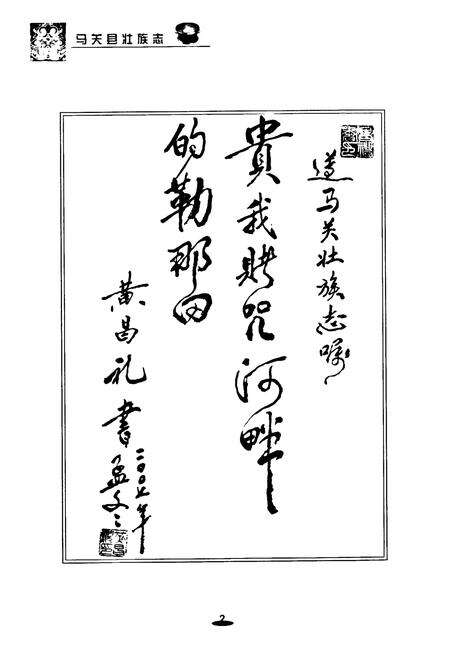 马关县壮族志
遵马关壮族志嘱
貴我賭咒河畔
的勒那田
黄昌礼書
二〇〇七年
孟冬
2